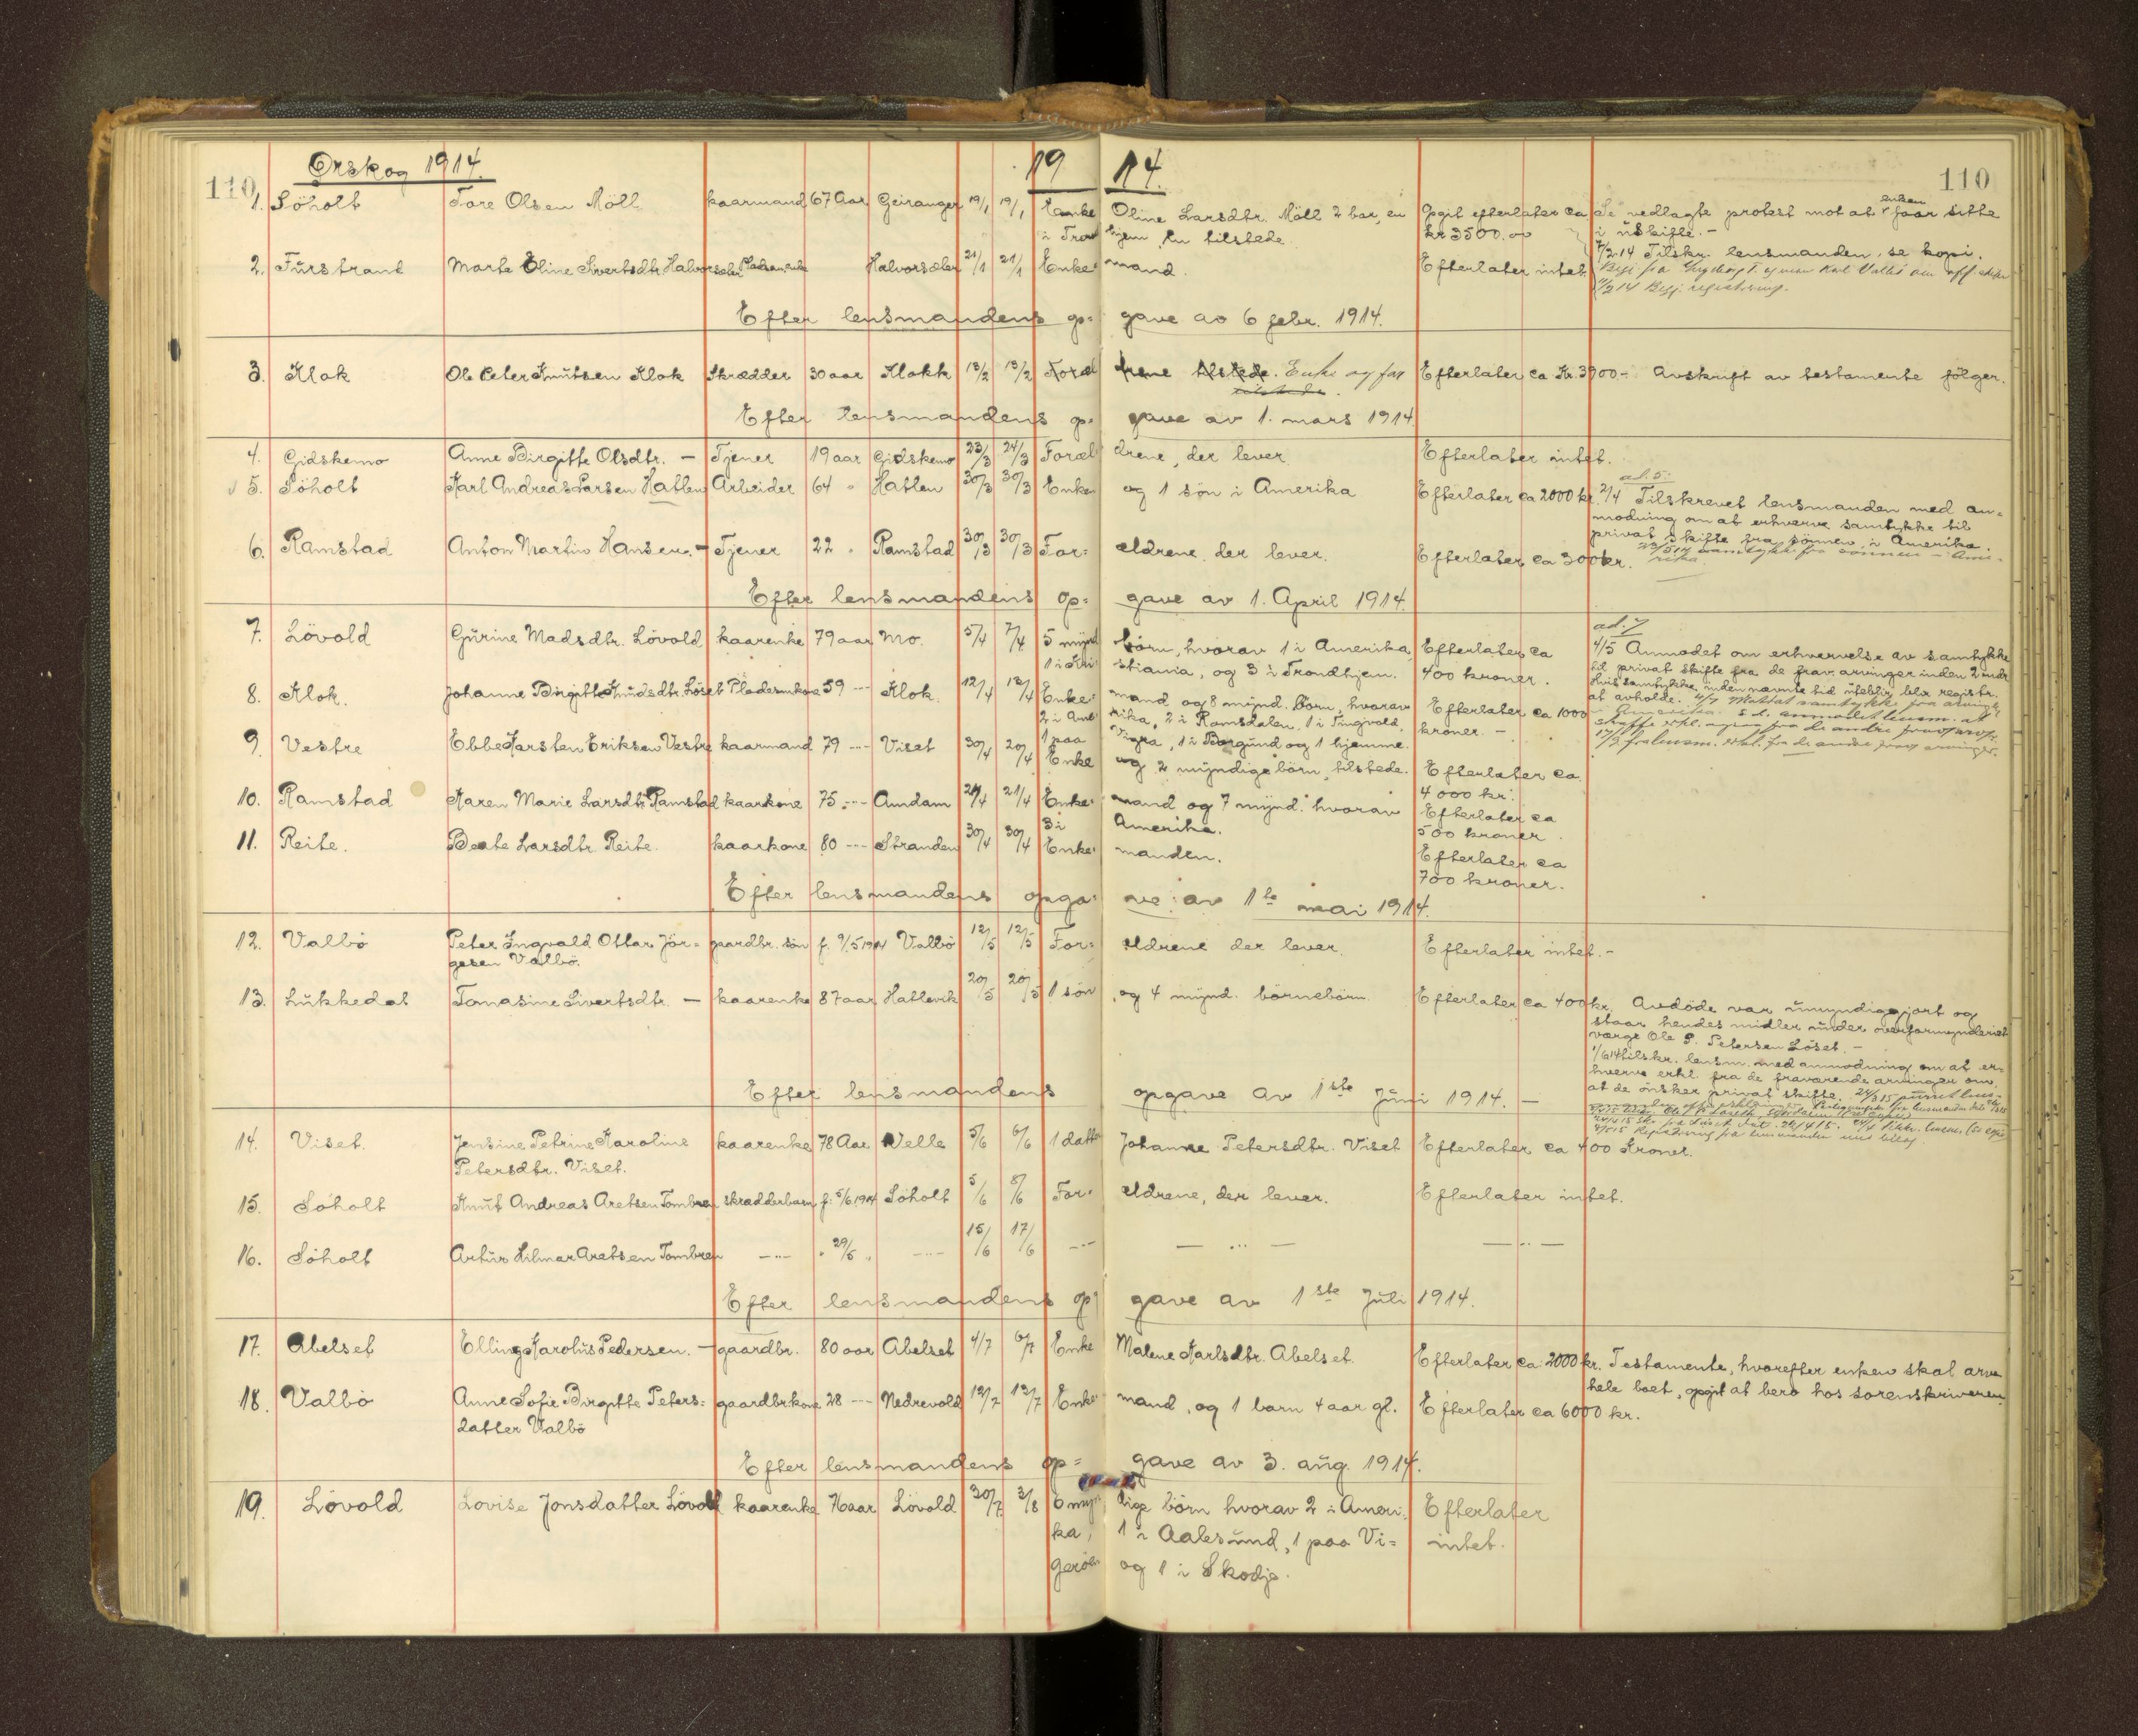 Ørskog 1914.
19 14.
110
110
1. Söholt Tore Olsen Möll kaarmand 67 Aar Geiranger 19/1 19/1 Enke Oline Larsdtr. Möll 2 bar, en Opgit efterlater ca Se vedlagte protest mot at enken faar sitte
i Trondhjem, en tilstede. kr 3500.00 i uskifte. -
7/2-14 Tilskr. lensmanden, se kopi.
2. Fürstrant Marte Eline Sivertsdtr. Halvorsæter Halvorsæter 21/1 21/1 Enkemand. Efterlater intet.
11/2 14 Begj. registrering.
Efter lensmandens opgave av 6 febr. 1914.
3. Klok Ole Peter Knütsen Klok Skrædder 30 aar Klokk 13/2 13/2 Forældrene tilstede. Enke og far Efterlater ca Kr. 3900- Avskrift av testamente fölger.
tilstede.
Efter lensmandens opgave av 1. mars 1914.
4. Gidskemo Anne Birgitte Olsdtr. - Tjener 19 aar Gidskemo 23/3 24/3 Forældrene, der lever. Efterlater intet.
ad. 5:
5. Söholt Karl Andreas Larsen Hatlen Arbeider 64 " Hatlen 30/3 30/3 Enken og 1 sön i Amerika Efterlater ca 2000 kr. 2/4 Tilskrevet lensmanden med an=
modning om at erhverve samtykke til
privat skifte fra sönnen i Amerika.
6. Ramstad Anton Martin Hansen. - Tjener 22 " Ramstad 30/3 30/3 For=ældrene der lever. Efterlater ca 300 kr.
samtykke fra sönnen i Ame-
rika.
Efter lensmandens op=gave av 1. April 1914.
ad. 7
7. Lövold Gürine Madsdtr. Lövold kaarenke 79 aar Mo. 5/4 7/4 5 mynd börn, hvorav 1 i Amerika, Efterlater ca 4/5 Anmodet om erhvervelse av samtykke
1 i Kristiania, og 3 i Trondhjem. 400 kroner. til privat skifte fra de frav. arvinger inden 2 mdr.
Hvis samtykke inden nævnte tid uteblir blir registr.
at avholde.
8. Klok. Johanne Birgitte Knüdsdtr. Löset Pladsmkone 59 -"- Klok. 12/4 13/4 Enkemand og 8 mynd. börn, hvorav Efterlater ca 1000
2 i Amerika, 2 i Romsdalen, 1 i Tingvold, kroner. -
1 paa Vigra, 1 i Borgund og 1 hjemme.
9. Vestre Ebbe Karsten Eriksen Vestre kaarmand 79 -"- Viset 30/4 20/4 Enke og 2 myndige börn, tilstede. Efterlater ca
4000 kr.
10. Ramstad Karen Marie Larsdtr. Ramstad kaarkone 75 -"- Amdam 21/4 21/4 Enkemand og 7 mynd. hvorav Efterlater ca
3 i Amerika. 500 kroner.
11. Reite. Beate Larsdtr. Reite. kaarkone 80 -"- Stranden 30/4 30/4 Enkemanden. Efterlater ca
700 kroner.
Efter lensmandens opgave av 1te mai 1914.
12. Valbö Peter Ingvald Ottar Jör= gaardbr. sön f. 9/5 1914 Valbö 12/5 12/5 For=ældrene der lever. Efterlater intet. -
gesen Valbö.
13. Lükkedal Tomasine Sivertsdtr. - kaarenke 87 aar Hatlevik 20/5 20/5 1 sön, og 4 mynd. börnebörn. Efterlater ca 400 kr. Avdöde var ümyndiggjort og
staar hendes midler ünder overformynderiet
værge Ole P. Petersen Löset. -
1/6 14 tilskr. lensm. med anmodning om at er=
hverve erkl. fra de fraværende arvinger om
at de önsker privat skifte.
Efter lensmandens opgave av 1ste Jüni 1914. -
14. Viset. Jensine Petrine Karoline kaarenke 78 Aar Velle 5/6 6/6 1 datter Johanne Petersdtr. Viset Efterlater ca 400 Kroner.
Petersdtr. Viset.
15. Söholt Knüt Andreas Aretsen Tombren skrædderbarn f. 5/6 1914 Söholt 5/6 8/6 For=ældrene, der lever. Efterlater intet.
16. Söholt Artür Hilmar Aretsen Tombren -"- " 29/5 " -"- 15/6 17/6 -"- -"- -"-
Efter lensmandens opgave av 1ste Jüli 1914.
17. Abelset Elling Karolüs Pedersen. - gaardbr. 80 aar Abelset 4/7 6/7 Enke Malene Karlsdtr. Abelset. Efterlater ca 2000 kr. Testamente, hvorefter enken skal arve
hele boet, opgit at bero hos sorenskriveren.
18. Valbö Anne Sofie Birgitte Peters= gaardbrkone 28 -"- Nedrevold 12/7 13/7 Enkemand, og 1 barn 4 aar gl. Efterlater ca 6000 kr.
datter Valbö
Efter lensmandens op=gave av 3. aüg. 1914.
19. Lövold Lovise Jonsdatter Lövold kaarenke 76 aar Lövold 30/7 3/8 6 myndige börn hvorav 2 i Ameri= Efterlater
ka, 1 i Aalesünd, 1 paa Vi= intet.
geröen og 1 i Skodje.